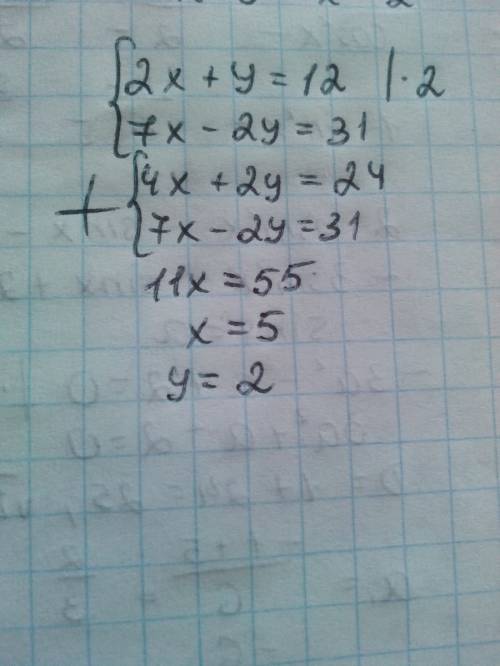 {2x + y = 12 | · 2
7x - 2y = 31
+ {4x + 2y = 24
7x - 2y = 31
11x = 55
x = 5
y = 2